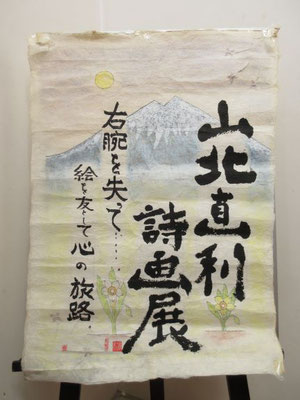 山北直利
詩画展
右腕を失って……
絵を友として心の旅路